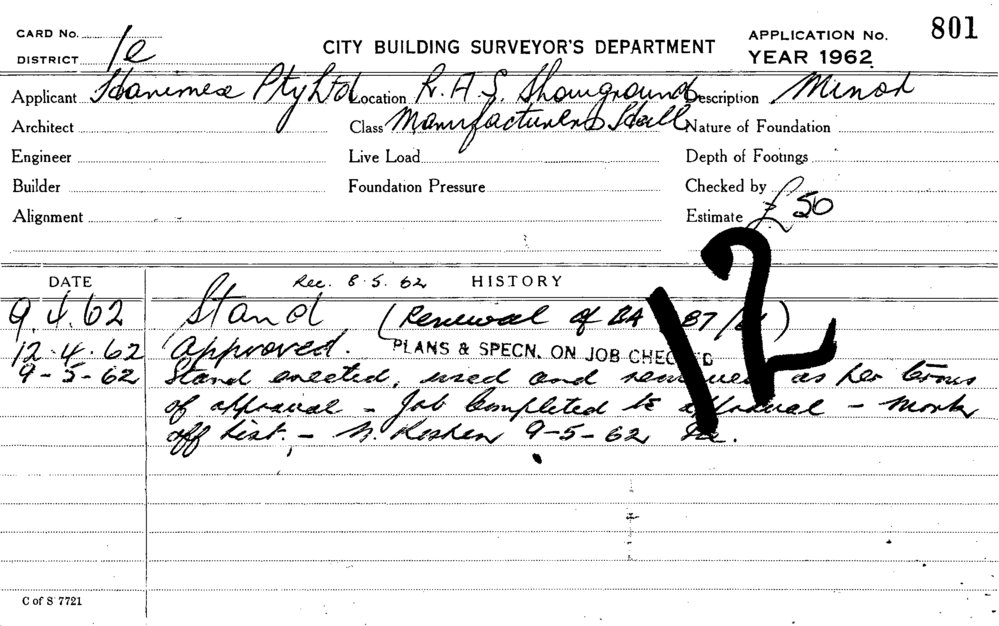 CARD No.
DISTRICT 1e
CITY BUILDING SURVEYOR'S DEPARTMENT
APPLICATION No. 801
YEAR 1962
Applicant Hanimex Pty Ltd Location R. A. S. Showground Description Minor
Architect Class Manufacturers Hall Nature of Foundation
Engineer Live Load Depth of Footings
Builder Foundation Pressure Checked by
Alignment Estimate £50
12
DATE Rec. 8.5.62 HISTORY
9.4.62 Stand (Renewal of BA 87/61)
12.4.62 Approved. PLANS & SPECN. ON JOB CHECKED
9-5-62 Stand erected, used and removed as per terms
of approval - Job Completed to approval - Mark
off list. - 9-5-62
C of S 7721